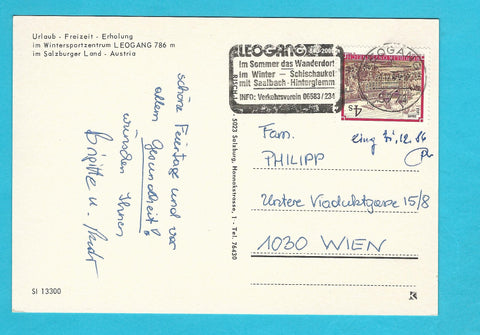 Urlaub - Freizeit - Erholung
im Wintersportzentrum LEOGANG 786 m
im Salzburger Land - Austria
schöne Feiertage und vor
allem Gesundheit!
wünschen Ihnen
Brigitte u.
SI 13300
5023 Salzburg, Hannakstrasse, 1 - Tel. 76430
LEOGANG
Im Sommer das Wanderdorf
im Winter - Schischaukel
mit Saalbach-Hinterglemm
INFO: Verkehrsverein 06583/234
LEOGANG
4 S
Fam.
PHILIPP
Untere Viaduktgasse 15/8
1030 WIEN